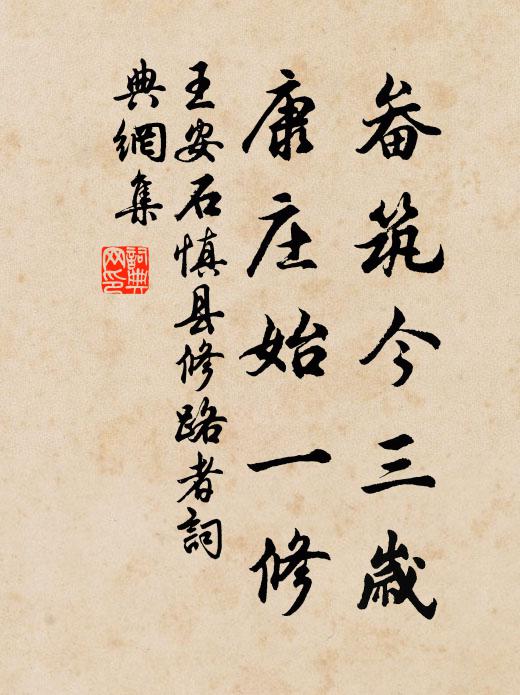 畚筑今三歲
康庄始一修
王安石慎县修路者詞
典網集
詞典
网印